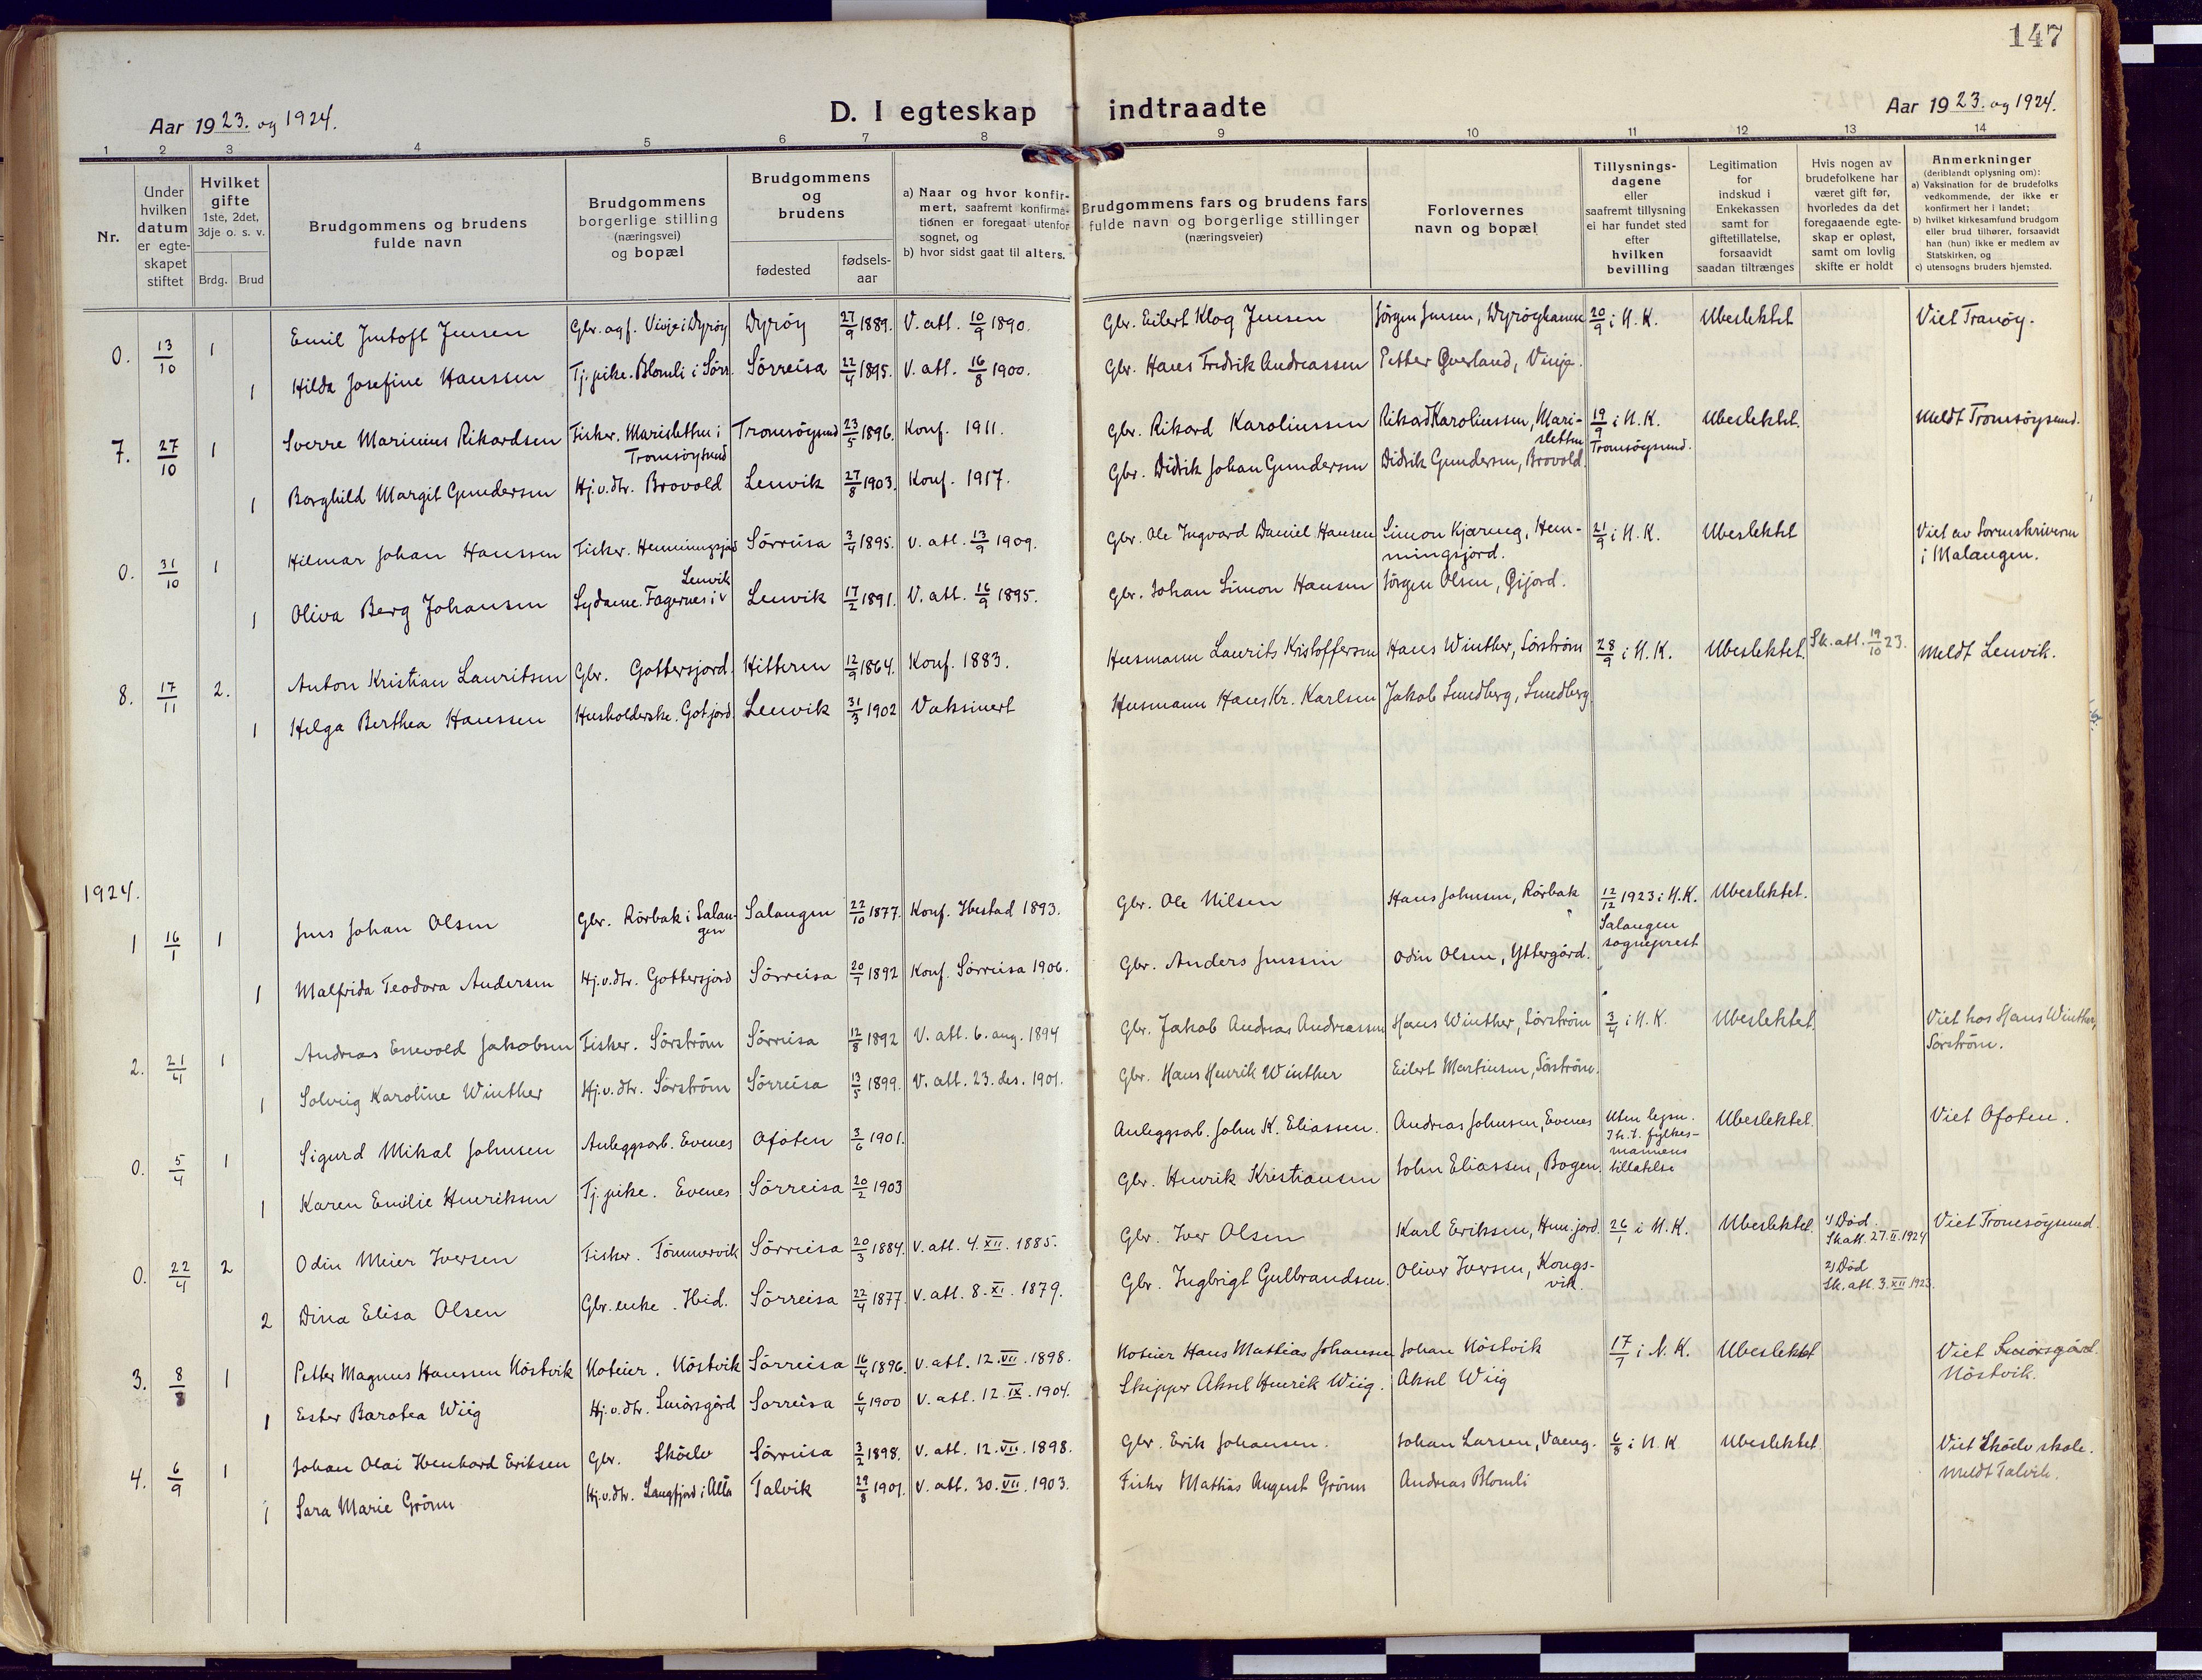 147
Aar 1923. og 1924.
D. I egteskap indtraadte
Aar 1923. og 1924.
1 2 3 4 5 6 7 8 9 10 11 12 13 14
Nr.
Under hvilken datum er egteskapet stiftet
Hvilket gifte 1ste, 2det, 3dje o. s. v.
Brdg. Brud
Brudgommens og brudens fulde navn
Brudgommens borgerlige stilling (næringsvei) og bopæl
Brudgommens og brudens
fødested
fødselsaar
a) Naar og hvor konfirmert, saafremt konfirmationen er foregaat utenfor sognet, og
b) hvor sidst gaat til alters.
Brudgommens fars og brudens fars fulde navn og borgerlige stillinger (næringsveier)
Forlovernes navn og bopæl
Tillysningsdagene eller saafremt tillysning ei har fundet sted efter hvilken bevilling
Legitimation for indskud i Enkekassen samt for giftetillatelse, forsaavidt saadan tiltrænges
Hvis nogen av brudefolkene har været gift før, hvorledes da det foregaaende egteskap er opløst, samt om lovlig skifte er holdt
Anmerkninger (deriblandt oplysning om):
a) Vaksination for de brudefolks vedkommende, der ikke er konfirmert her i landet;
b) hvilket kirkesamfund brudgom eller brud tilhører, forsaavidt han (hun) ikke er medlem av Statskirken, og
c) utensogns bruders hjemsted.
0. 13/10 1 Emil Jentoft Jensen Gbr. agf. Vinje i Dyrøy Dyrøy 27/9 1889. V. att. 10/9 1890. Gbr. Eilert Klog Jensen Jörgen Jensen, Dyröyhamn 20/9 i H. K. Ubeslektet Viet Tranøy.
1 Hilda Josefine Hanssen Tj. pike. Blomli i Sörr. Sörreisa 22/4 1895. V. att. 16/8 1900. Gbr. Hans Fredrik Andreassen Petter Qverland, Vinje.
7. 27/10 1 Sverre Marinius Rikardsen Fisker. Marisletten i Tromsöysund Tromsöysund 23/5 1896. Konf. 1911. Gbr. Rikard Karoliussen Rikard Karoliussen, Marisletten 19/9 i H. K. Tromsöysund. Ubeslektet. Meldt Tromsöysund.
1 Borghild Margit Gundersen Hj.v.dtr. Brovold Lenvik 27/8 1903. Konf. 1917. Gbr. Didrik Johan Gundersen Didrik Gundersen, Brovold.
0. 31/10 1 Hilmar Johan Hanssen Fisker. Henningsjord Sörreisa 3/4 1895. V. att. 13/9 1909. Gbr. Ole Ingvard Daniel Hansen Simon Kjæreng, Hemmingsjord. 21/9 i H. K. Ubeslektet Viet av Sorenskriveren i Malangen.
1 Oliva Berg Johansen Sydame. Fagernes i Lenvik Lenvik 17/2 1891. V. att. 16/9 1895. Gbr. Johan Simon Hansen Jörgen Olsen, Gjord.
8. 17/11 2. Anton Kristian Lauritsen Gbr. Gottersjord. Hitteren 12/9 1864. Konf. 1883. Husmann Laurits Kristoffersen Hans Winther, Sörström 28/9 i H. K. Ubeslektet. Sk. att. 19/10 23. Meldt Lenvik.
1 Helga Berthea Hanssen Husholderske. Gotjord. Lenvik 31/3 1902 Vaksinert Husmann Hans Kr. Karlsen Jakob Lundberg, Lundberg
1924.
1 16/1 1 Jens Johan Olsen Gbr. Rörbak i Salangen Salangen 22/10 1877. Konf. Ibestad 1893. Gbr. Ole Nilsen Hans Johnsen, Rörbak 12/12 1923 i H. K. Salangen sogneprest Ubeslektet.
1 Malfrida Teodora Andersen Hj.v.dtr. Gottersjord Sörreisa 20/7 1892 Konf. Sörreisa 1906. Gbr. Anders Jenssen Odin Olsen, Yttergård.
2. 21/4 1 Andreas Enevold Jakobsen Fisker. Sörström Sörreisa 12/8 1892 V. att. 6. aug. 1894 Gbr. Jakob Andreas Andreassen Hans Winther, Sörström 3/4 i H. K. Ubeslektet. Viet hos Hans Winther, Sörström.
1 Solveig Karoline Winther Hj.v.dtr. Sörström Sörreisa 13/5 1899. V. att. 23. des. 1901. Gbr. Hans Henrik Winther Eilert Martinsen, Sörström.
0. 5/4 1 Sigurd Mikal Johnsen Anleggsarb. Evenes Ofoten 3/6 1901. Anleggsarb. John K. Eliassen. Andreas Johnsen, Evenes Uten lysn. Ih. t. fylkesmannens tillatelse Ubeslektet. Viet Ofoten.
1 Karen Emilie Henriksen Tj. pike. Evenes Sörreisa 20/2 1903 Gbr. Henrik Kristiansen John Eliassen, Bogen.
0. 22/4 2 Odin Meier Iversen Fisker. Tömmervik Sörreisa 20/3 1884. V. att. 4. XII. 1885. Gbr. Iver Olsen Karl Eriksen, Hem.jord. 26/1 i H. K. Ubeslektet. 1) Död. Sk att. 27. II. 1924 Viet Tromsöysund.
2 Dina Elisa Olsen Gbr. enke. Ibid. Sörreisa 22/4 1877. V. att. 8. XI. 1879. Gbr. Ingbrigt Gulbrandsen. Oliver Iversen, Kongsvik. 2) Död Sk. att. 3. XII 1923.
3. 8/8 1 Petter Magnus Hanssen Nöstvik Noteier. Nöstvik Sörreisa 16/4 1896. V. att. 12. VII. 1898. Noteier Hans Mathias Johansen Johan Nöstvik 17/7 i N. K. Ubeslektet Viet Smörsgård. Nöstvik.
1 Ester Barotea Wiig Hj.v.dtr. Smörsgård Sörreisa 6/4 1900 V. att. 12. IX. 1904. Skipper Aksel Henrik Wiig. Aksel Wiig
4. 6/9 1 Johan Olai Ibenhard Eriksen Gbr. Sköelv Sörreisa 3/2 1898. V. att. 12. VII. 1898. Gbr. Erik Johansen. Johan Larsen, Vaeng. 6/8 i H. K Ubeslektet. Viet Sköelv skole. Meldt Talvik.
1 Sara Marie Grönn Hj.v.dtr. Langfjord i Alta Talvik 29/8 1901. V. att. 30. VII. 1903. Fisker Mathias August Grönn Andreas Blomli